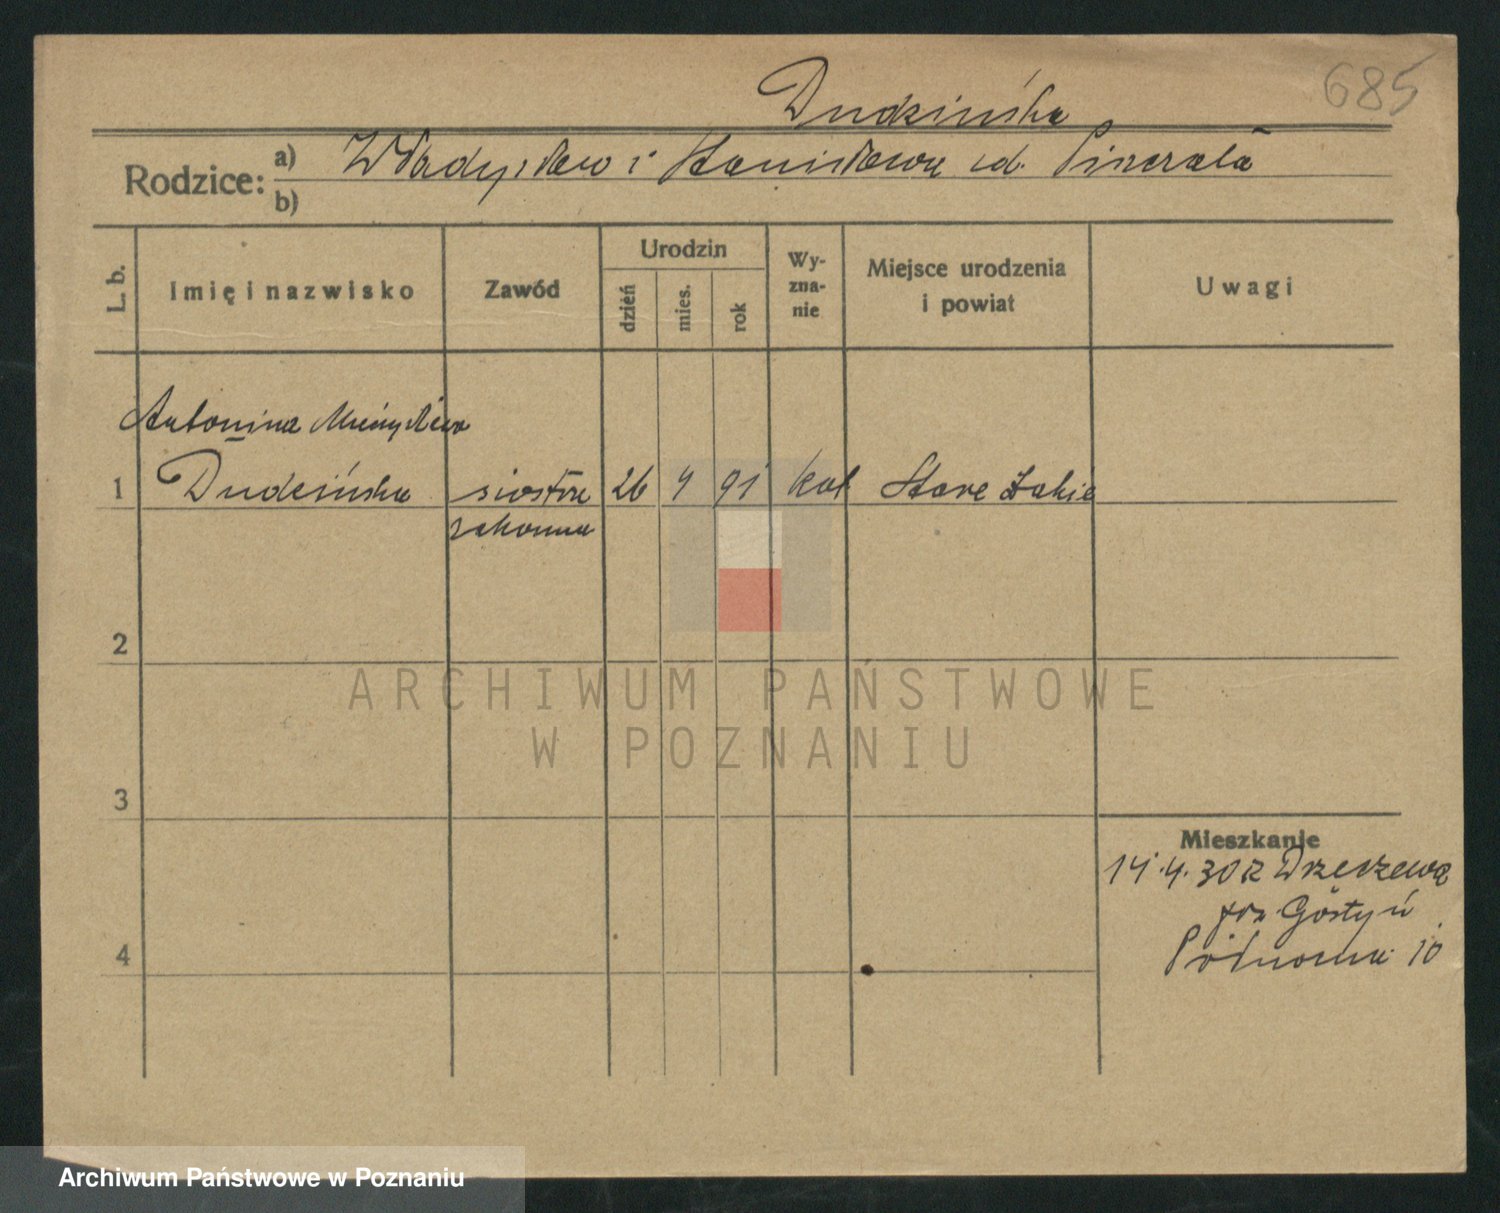 685
Dudzińska
Rodzice: a) Władysław i Stanisława ud. Piszczała
b)
L. b.
Imię i nazwisko
Zawód
Urodzin
dzień
mies.
rok
Wy-
zna-
nie
Miejsce urodzenia
i powiat
Uwagi
Antonina Mieczysława
1 Dudzińska siostra 26 4 91 kat Stare
zakonna
2
3
4
Mieszkanie
14.4.30 z Drzeczewa
pow Gostyń
Północna 10
ARCHIWUM PAŃSTWOWE
W POZNANIU
Archiwum Państwowe w Poznaniu